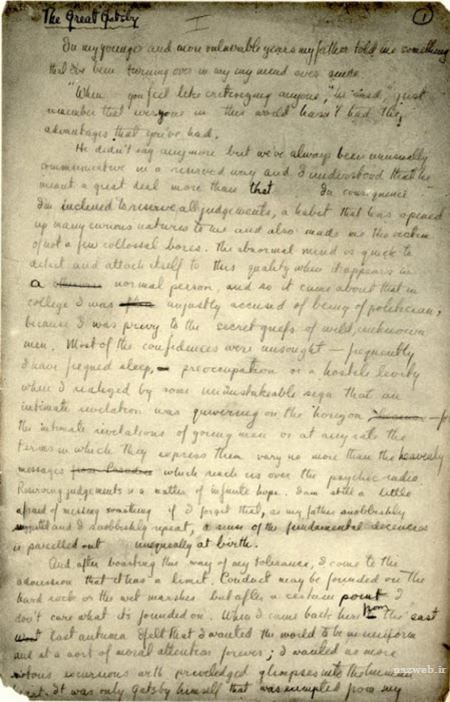 The Great Gatsby
I
1
In my younger and more vulnerable years my father told me something
that I've been turning over in my my mind ever since.
"When you feel like critisizing anyone," he said, "just
remember that everyone in this world hasn't had the
advantages that you've had.
He didn't say anymore but we've always been unusually
communicative in a reserved way and I understood that he
meant a great deal more than that In consequence
I'm inclined to reserve all judgements, a habit that has opened
up many curious natures to me and also made me the victim
of not a few collossal bores. The abnormal mind is quick to
detect and attach itself to this quality when it appears in
a normal person, and so it came about that in
college I was unjustly accused of being a politician,
because I was privy to the secret griefs of wild, unknown
men. Most of the confidences were unsought — frequently
I have feigned sleep, preoccupation or a hostile levity
when I realized by some unmistakeable sign that an
intimate revelation was quivering on the horizon — for
the intimate revelations of young men or at any rate the
terms in which they express them vary no more than the heavenly
messages from Paradise which reach us over the psychic radio.
Reserving judgements is a matter of infinite hope. I am still a little
afraid of missing something if I forget that, as my father snobbishly
and I snobbishly repeat, a sense of the fundamental decencies
is parcelled out unequally at birth.
And, after boasting this way of my tolerance, I come to the
admission that it has a limit. Conduct may be founded on the
hard rock or the wet marshes but after a certain point I
don't care what it's founded on. When I came back here from the east
last autumn I felt that I wanted the world to be in uniform
and at a sort of moral attention forever; I wanted no more
riotous excursions with priviledged glimpses into the human
heart. It was only Gatsby himself that was exempted from my
nazweb.ir